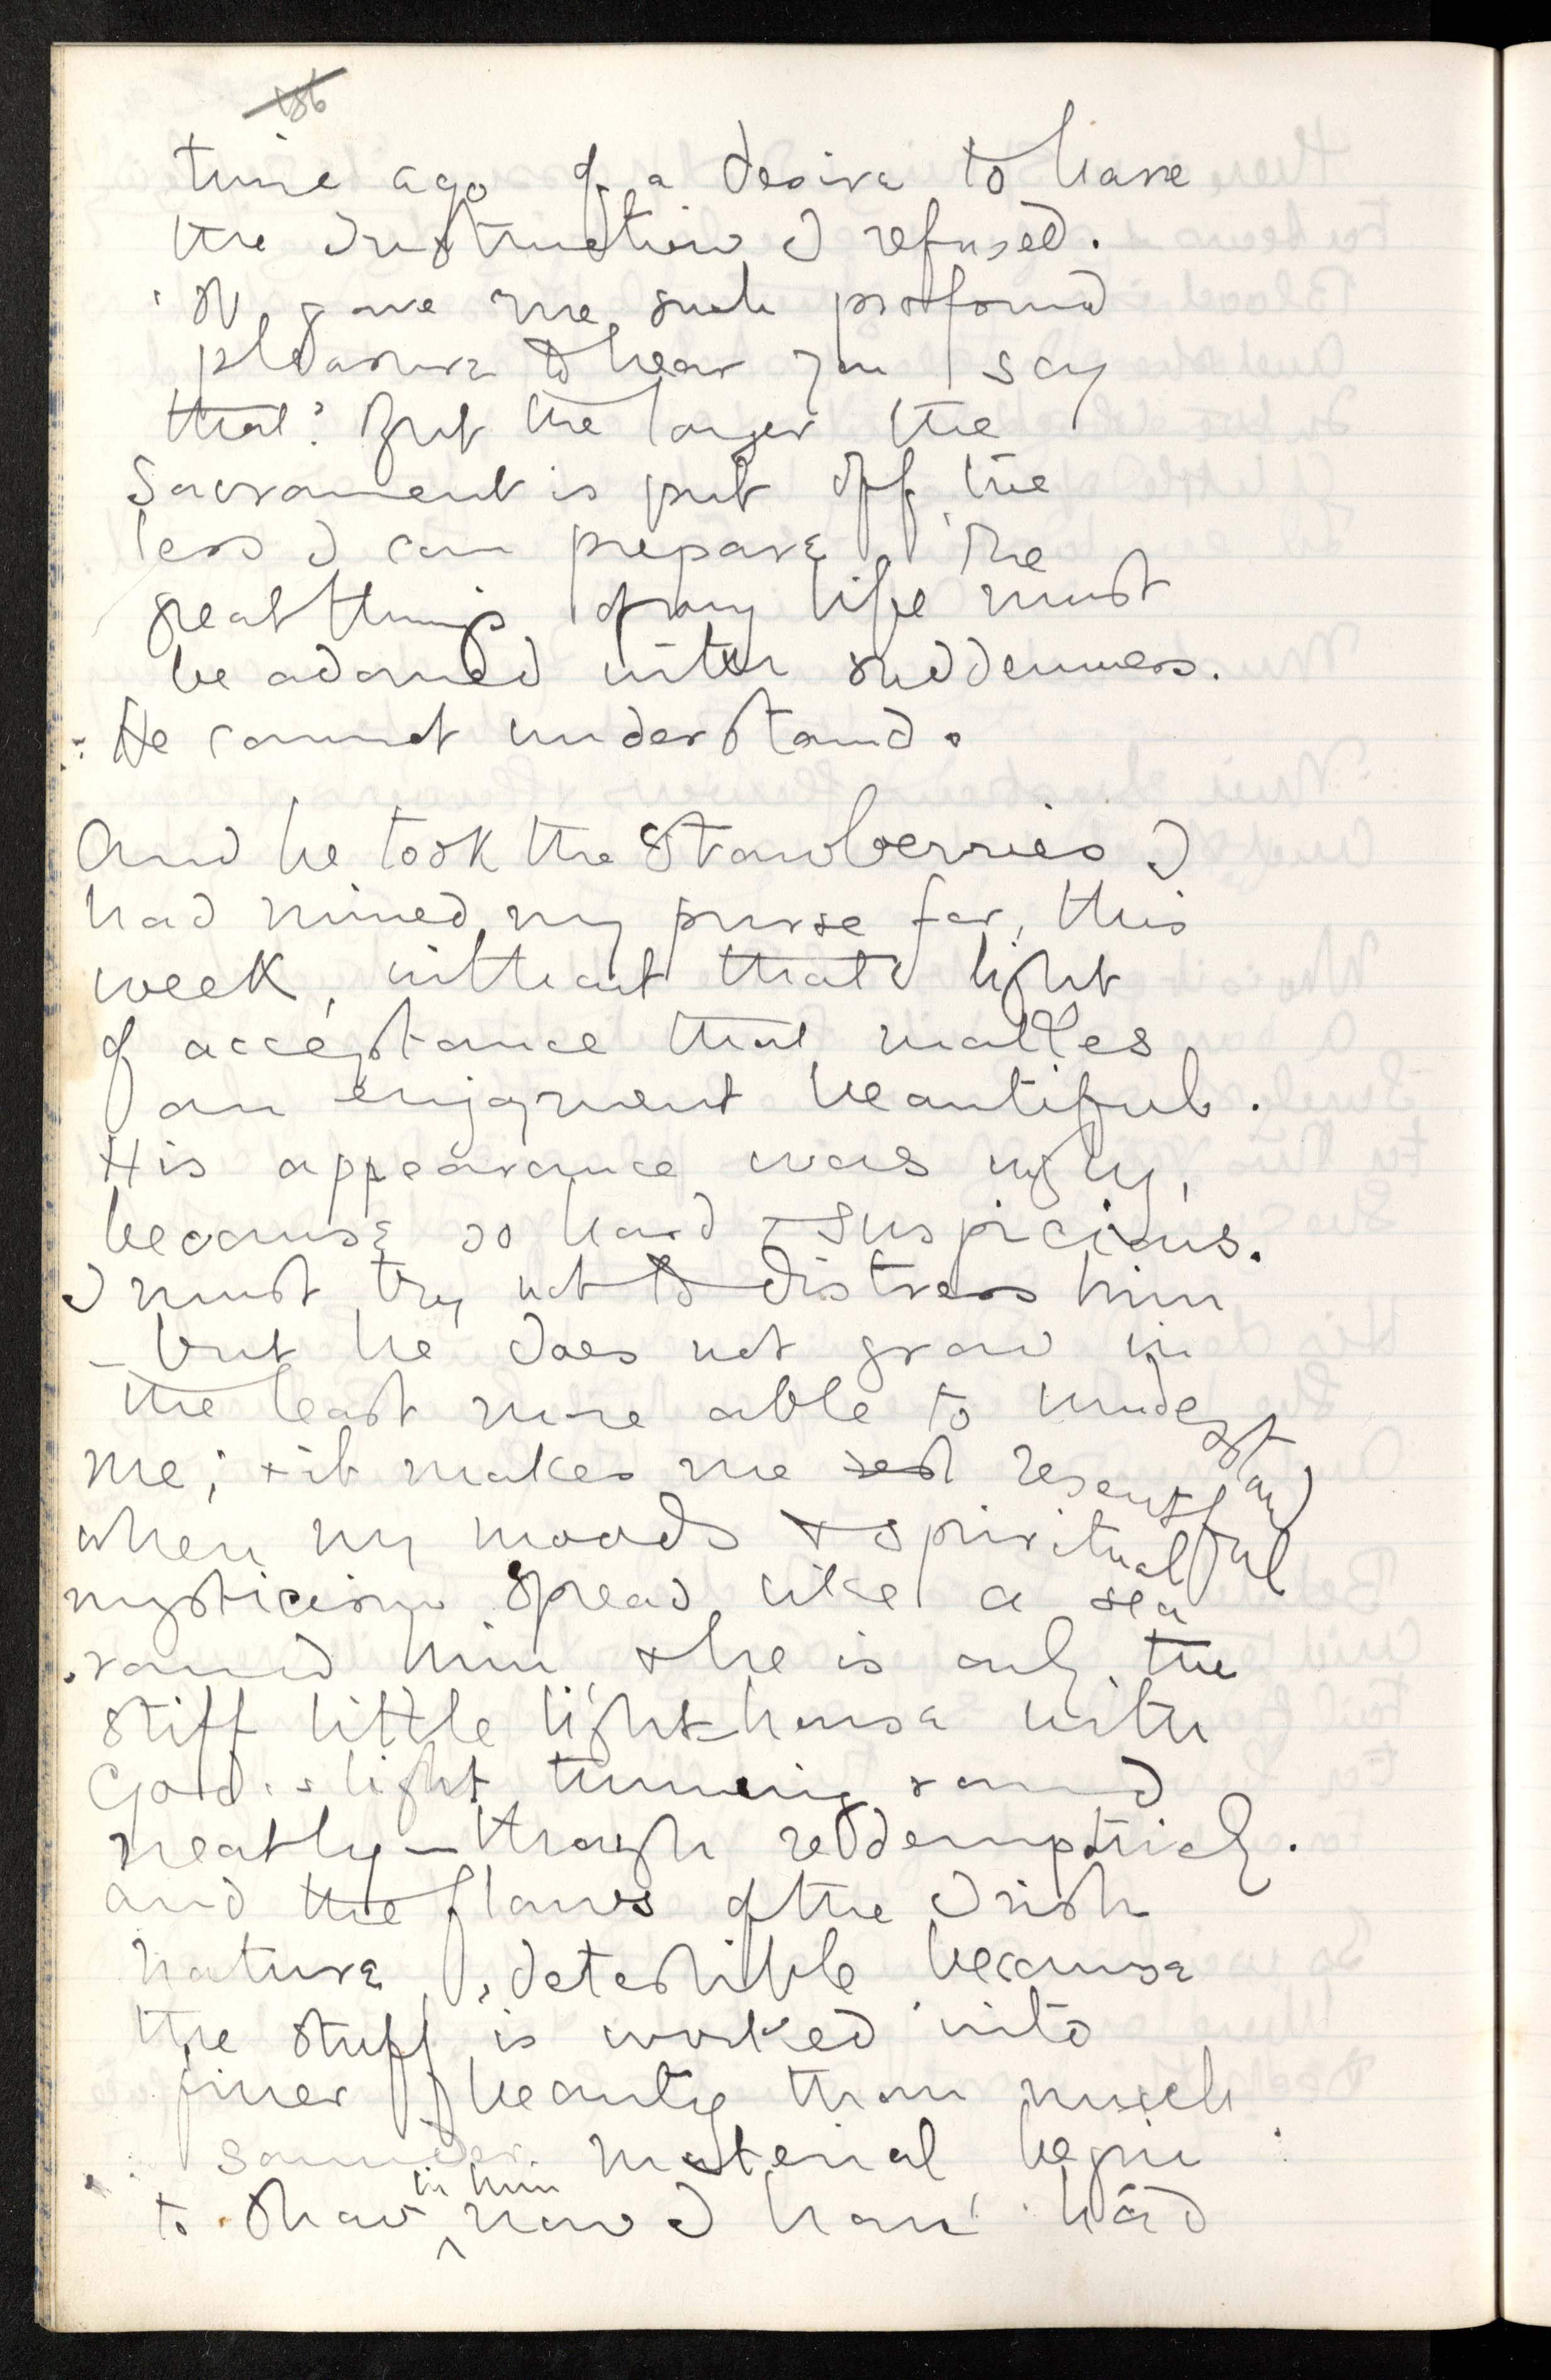 186
time ago of a desire to have
the Instruction I refused.
'It gave me such profound
pleasure to hear you say
that.' But the longer the
Sacrament is put off the
less I can prepare. The
great things of my life must
be adorned with suddenness.
He cannot understand.
And he took the Strawberries I
had ruined my purse for, this
week, without that light
of acceptance that makes
an enjoyment beautiful.
His appearance was ugly,
because so hard & suspicious.
I must try not to distress him
– but he does not grow in
the least more able to understand
me; & it makes me resentful
when my moods & spiritual
mysticism spread like a sea
round him & he is only the
stiff little light-house with
God's light turning round
neatly – though redemptively.
And the flaws of the Irish
nature, detestable because
the stuff is worked into
finer beauty than much
sounder material begin
to show in him now I have had